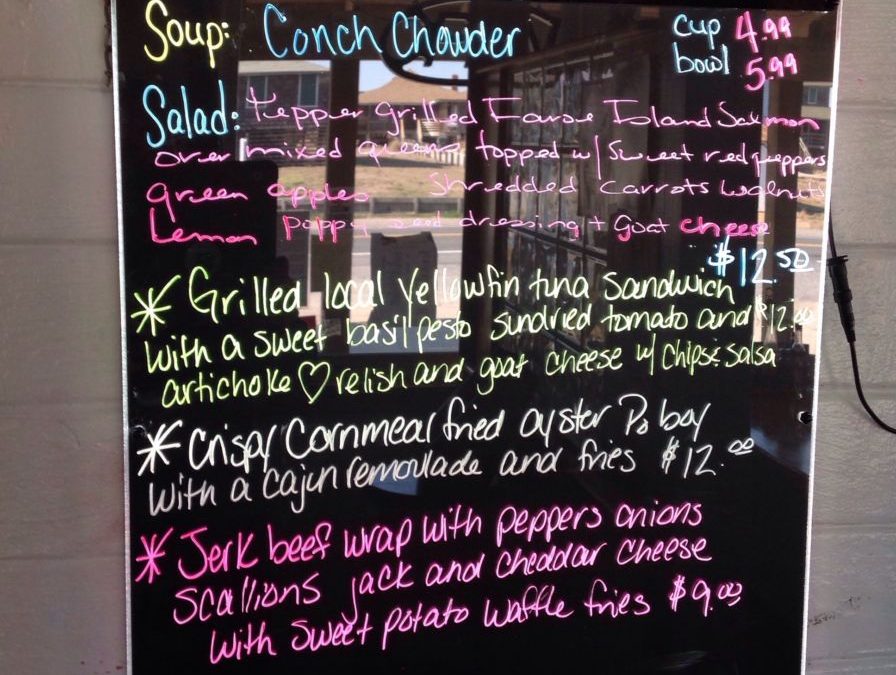 Soup: Conch Chowder cup 4.99
bowl 5.99
Salad: Pepper Grilled Faroe Island Salmon
over mixed greens topped w/ Sweet red peppers
green apples Shredded Carrots walnuts
Lemon poppy seed dressing + Goat cheese
$12.50
* Grilled local yellowfin tuna sandwich
with a sweet basil pesto sundried tomato and $12.00
artichoke ♡ relish and goat cheese w/ chips & salsa
* Crispy Cornmeal fried oyster Po boy
with a cajun remoulade and fries $12.00
* Jerk beef wrap with peppers onions
scallions jack and cheddar cheese
with sweet potato waffle fries $9.00